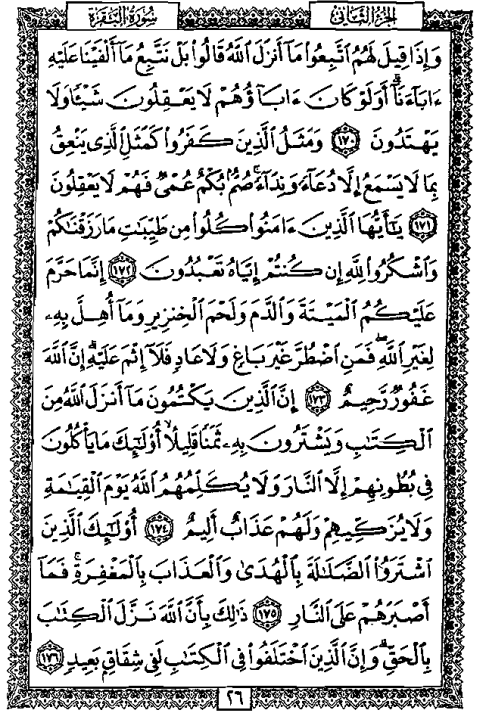 الجزء الثاني سورة البقرة
وَإِذَا قِيلَ لَهُمُ ٱتَّبِعُوا۟ مَآ أَنزَلَ ٱللَّهُ قَالُوا۟ بَلْ نَتَّبِعُ مَآ أَلْفَيْنَا عَلَيْهِ
ءَابَآءَنَآ ۗ أَوَلَوْ كَانَ ءَابَآؤُهُمْ لَا يَعْقِلُونَ شَيْـًٔا وَلَا
يَهْتَدُونَ ١٧٠ وَمَثَلُ ٱلَّذِينَ كَفَرُوا۟ كَمَثَلِ ٱلَّذِى يَنْعِقُ
بِمَا لَا يَسْمَعُ إِلَّا دُعَآءً وَنِدَآءً ۚ صُمٌّۢ بُكْمٌ عُمْىٌ فَهُمْ لَا يَعْقِلُونَ
١٧١ يَـٰٓأَيُّهَا ٱلَّذِينَ ءَامَنُوا۟ كُلُوا۟ مِن طَيِّبَـٰتِ مَا رَزَقْنَـٰكُمْ
وَٱشْكُرُوا۟ لِلَّهِ إِن كُنتُمْ إِيَّاهُ تَعْبُدُونَ ١٧٢ إِنَّمَا حَرَّمَ
عَلَيْكُمُ ٱلْمَيْتَةَ وَٱلدَّمَ وَلَحْمَ ٱلْخِنزِيرِ وَمَآ أُهِلَّ بِهِۦ
لِغَيْرِ ٱللَّهِ ۖ فَمَنِ ٱضْطُرَّ غَيْرَ بَاغٍ وَلَا عَادٍ فَلَآ إِثْمَ عَلَيْهِ ۚ إِنَّ ٱللَّهَ
غَفُورٌ رَّحِيمٌ ١٧٣ إِنَّ ٱلَّذِينَ يَكْتُمُونَ مَآ أَنزَلَ ٱللَّهُ مِنَ
ٱلْكِتَـٰبِ وَيَشْتَرُونَ بِهِۦ ثَمَنًا قَلِيلًا ۙ أُو۟لَـٰٓئِكَ مَا يَأْكُلُونَ
فِى بُطُونِهِمْ إِلَّا ٱلنَّارَ وَلَا يُكَلِّمُهُمُ ٱللَّهُ يَوْمَ ٱلْقِيَـٰمَةِ
وَلَا يُزَكِّيهِمْ وَلَهُمْ عَذَابٌ أَلِيمٌ ١٧٤ أُو۟لَـٰٓئِكَ ٱلَّذِينَ
ٱشْتَرَوُا۟ ٱلضَّلَـٰلَةَ بِٱلْهُدَىٰ وَٱلْعَذَابَ بِٱلْمَغْفِرَةِ ۚ فَمَآ
أَصْبَرَهُمْ عَلَى ٱلنَّارِ ١٧٥ ذَٰلِكَ بِأَنَّ ٱللَّهَ نَزَّلَ ٱلْكِتَـٰبَ
بِٱلْحَقِّ ۗ وَإِنَّ ٱلَّذِينَ ٱخْتَلَفُوا۟ فِى ٱلْكِتَـٰبِ لَفِى شِقَاقٍۭ بَعِيدٍ ١٧٦
٢٦